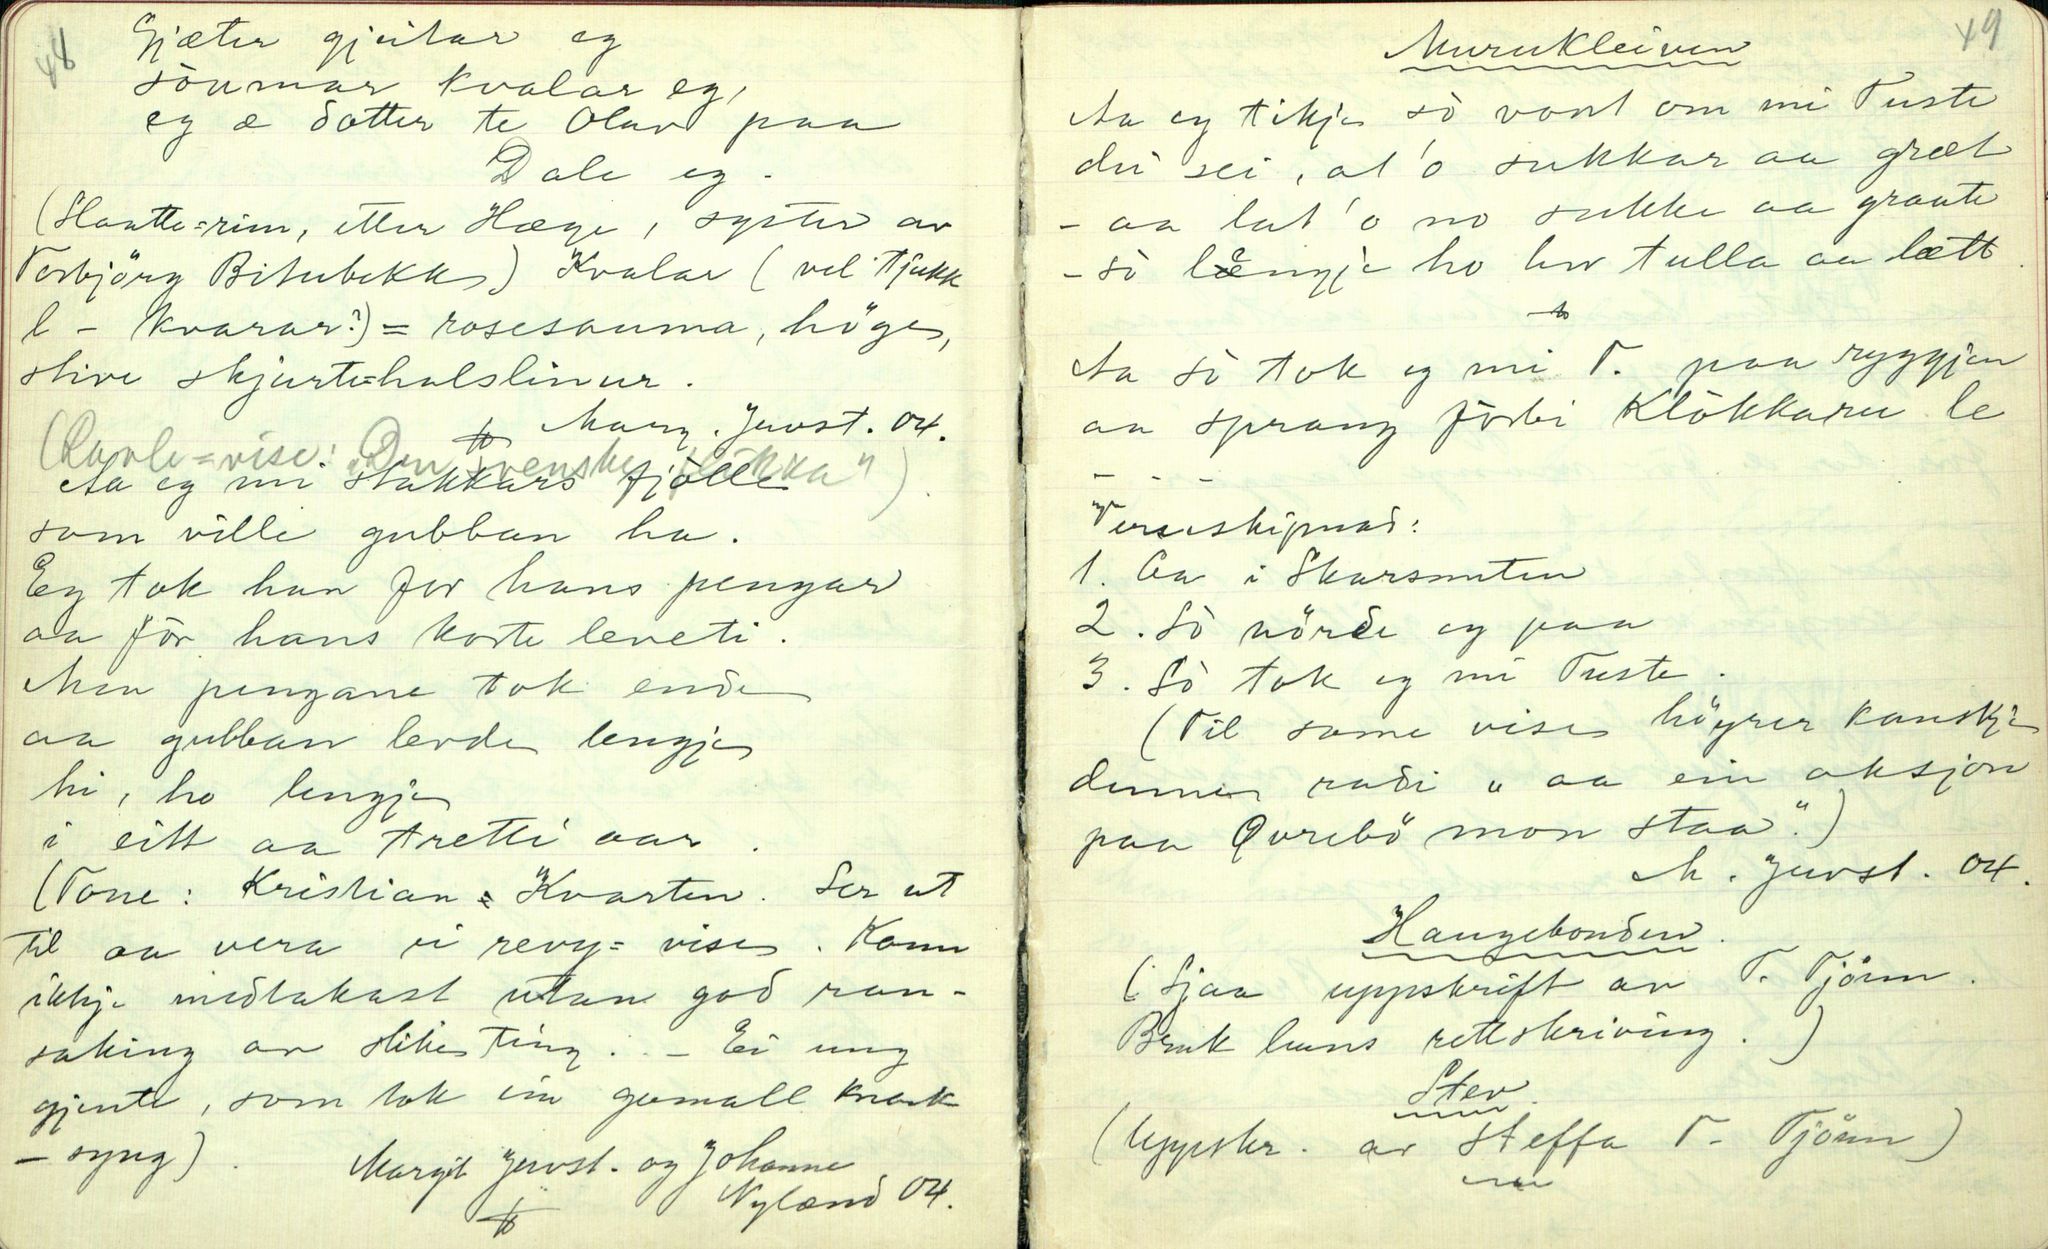 48
Gjæter gjeitar eg
sòumar kvalar eg,
eg æ dotter te Olav paa
Dale eg.
(Slaatte=rim, etter Hæge, syster av
Torbjörg Bitubekk) Kvalar (vel tjukk
l - kvarar?) = rosesauma, höge,
stive skjurte=halslinur.
Marg. Juvst. 04.
(Ravle=vise: "Den svenske flikka")
Aa eg mi stakkars fjolle
som ville gubban ha.
Eg tok han for hans pengar
aa før hans korte leveti.
Men pengane tok ende
aa gubban levde lengje
hi, ho lengje
i eitt aa tretti aar.
(Tone: Kristian = Kvarten. Ser ut
til aa vera ei revy=vise. Kann
ikkje medtakast utan god ran-
saking av slike ting. - Ei ung
gjente, som tok ein gamall knark
- syng).
Margit Juvst. og Johanne
Nylænd 04.
49
Murukleiven
Aa eg tikje sò vont om mi Tuste
du sei, at 'o sukkar aa græt
- aa lat 'o no sukke aa graate
- sò længje ho hev tulla aa lætt.
Aa sò tok eg mi T. paa ryggjen
aa sprang förbi Klòkkaru le
- - - -
Verseskipnad:
1. Aa i Skarsnuten
2. Sò nörde eg paa
3. Sò tok eg mi Tuste.
(Til same vise högrer kanskje
denne radi „ aa ein aksjon
paa Øvrebö mon staa".)
M. Juvst. 04.
Haugebonden.
(Sjaa uppskrift av T. Tjönn.
Bruk hans rettskriving.)
Stev.
(Uppskr. av Steffa T. Tjönn)